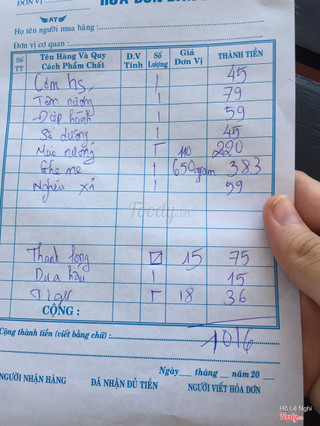 HÓA ĐƠN BÁN
ĐƠN VỊ
NY
Họ tên người mua hàng :
Đơn vị cơ quan :
Số TT Tên Hàng Và Quy Cách Phẩm Chất Đ.V Tính Số Lượng Giá Đơn Vị THÀNH TIỀN
Cơm hs 1 45
Tôm nướng 1 79
1 59
Sò dương 1 45
Mực nướng 110 220
Ghẹ me 650gram 383
Nghêu xả 1 59
Foody.vn
Thanh long 15 75
Dưa hấu 1 15
Tiger 18 36
CỘNG :
1016
Cộng thành tiền (viết bằng chữ) :
Ngày tháng năm 20
NGƯỜI NHẬN HÀNG ĐÃ NHẬN ĐỦ TIỀN NGƯỜI VIẾT HÓA ĐƠN
Hồ Lê Nghi
Foody.vn